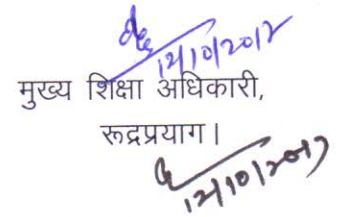 12/10/2017
मुख्य शिक्षा अधिकारी,
रूद्रप्रयाग।
12/10/2017